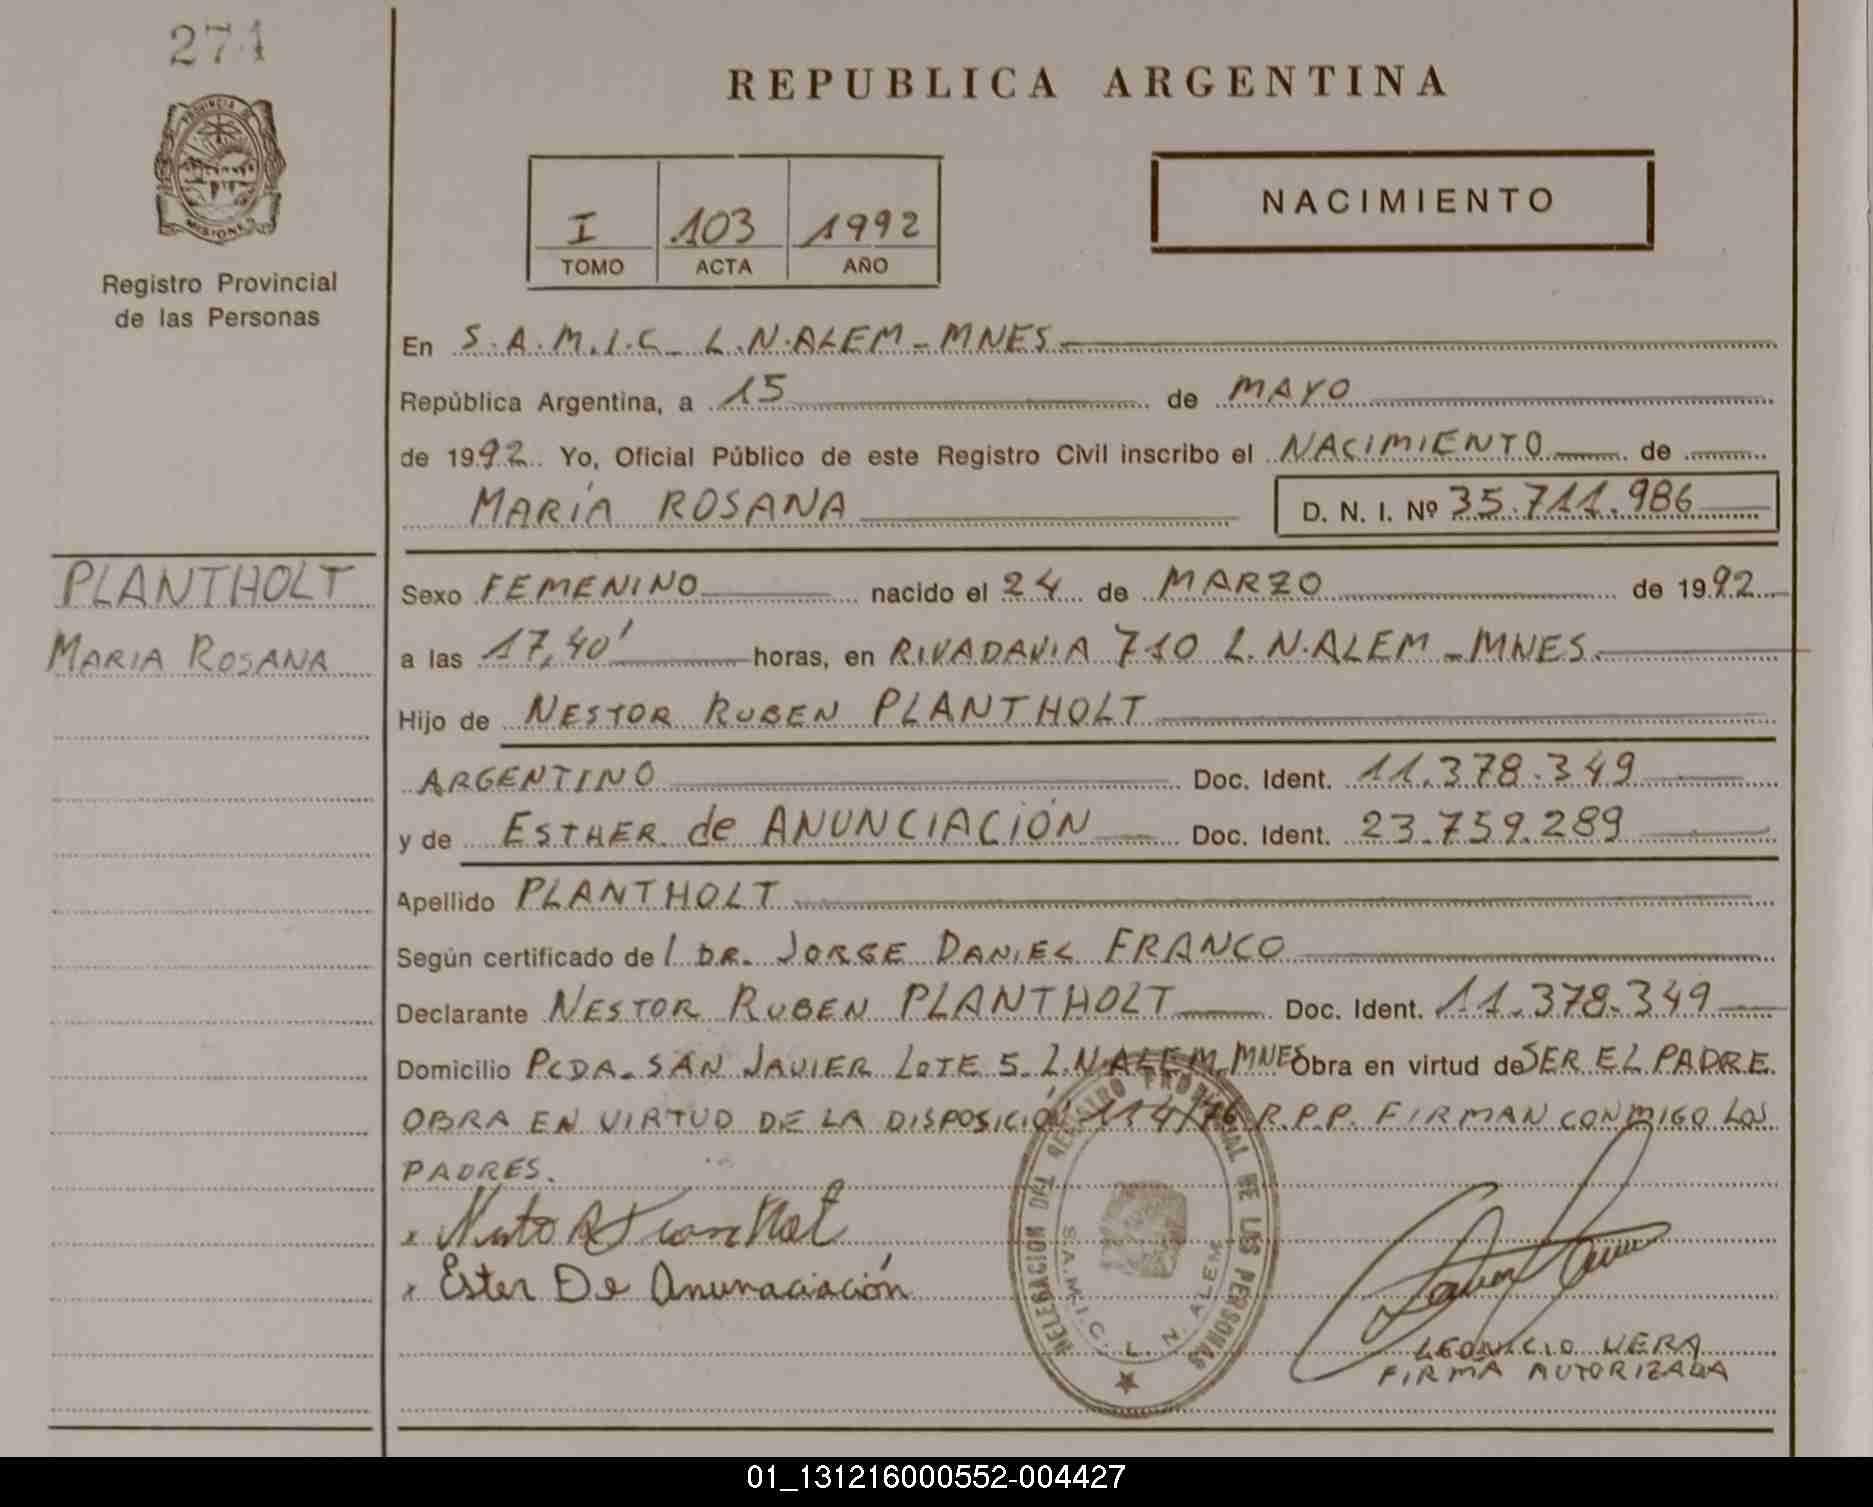 274
PROVINCIA DE
MISIONES
Registro Provincial
de las Personas
REPUBLICA ARGENTINA
I 103 1992
TOMO ACTA AÑO
NACIMIENTO
En S.A.M.I.C. L.N.ALEM - MNES
República Argentina, a 15 de MAYO
de 1992. Yo, Oficial Público de este Registro Civil inscribo el NACIMIENTO de
MARÍA ROSANA D. N. I. Nº 35.711.986
PLANTHOLT
MARIA ROSANA
Sexo FEMENINO nacido el 24 de MARZO de 1992
a las 17,40' horas, en RIVADAVIA 710 L.N.ALEM - MNES.
Hijo de NESTOR RUBEN PLANTHOLT
ARGENTINO Doc. Ident. 11.378.349
y de ESTHER de ANUNCIACIÓN Doc. Ident. 23.759.289
Apellido PLANTHOLT
Según certificado del DR. JORGE DANIEL FRANCO
Declarante NESTOR RUBEN PLANTHOLT Doc. Ident. 11.378.349
Domicilio PCDA. SAN JAVIER LOTE 5. L.N.ALEM. MNES Obra en virtud de SER EL PADRE.
OBRA EN VIRTUD DE LA DISPOSICIÓN 114/76 R.P.P. FIRMAN CONMIGO LOS
PADRES.
x
x Ester De Anunaciación
DELEGACION DEL REGISTRO PROVINCIAL DE LAS PERSONAS
S.A.M.I.C. L. N. ALEM
LEONICIO VERA
FIRMA AUTORIZADA
01_131216000552-004427